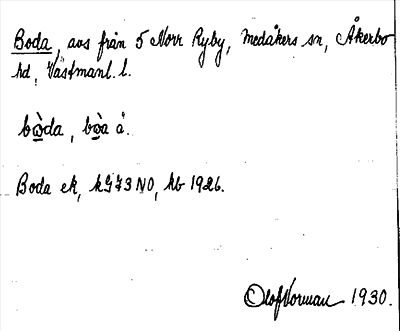 Boda, avs från 5 Norr Ryby, Medåkers sn, Åkerbo
hd, Västmanl. l.
bὼda, bὼa å.
Boda ek, kG73NO, hb 1926.
Olof Norman 1930.